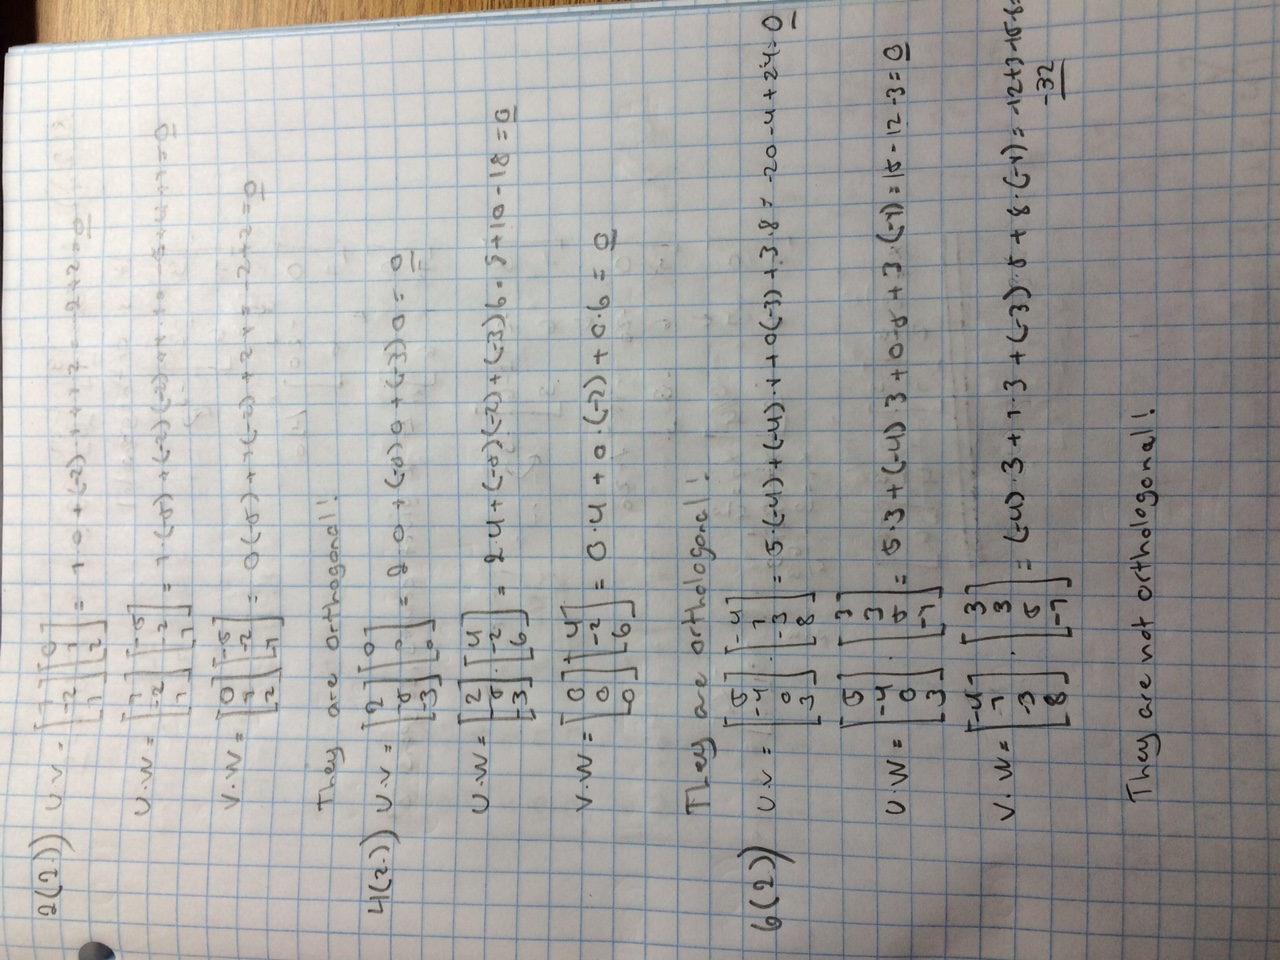 2(2.)) U.V = [1 -2 1] [0 1 2] = 1·0 + (-2)·1 + 1·2 = -2+2 = 0
U.W = [1 -2 1] [-5 -2 1] = 1·(-5) + (-2)(-2) + 1·1 = -5+4+1 = 0
V.W = [0 1 2] [-5 -2 1] = 0(-5) + 1(-2) + 2·1 = -2+2 = 0
They are orthogonal!
4(2.)) U.V = [2 -5 -3] [0 0 0] = 2·0 + (-5)0 + (-3)0 = 0
U.W = [2 -5 -3] · [4 -2 6] = 2·4 + (-5)(-2) + (-3)6 = 8+10-18 = 0
V.W = [0 0 0] [4 -2 6] = 0·4 + 0·(-2) + 0·6 = 0
They are orthologonal!
6(2)) U.V = [5 -4 0 3] · [-4 1 -3 8] = 5·(-4) + (-4)·1 + 0(-3) + 3·8 = -20-4+24 = 0
U.W = [5 -4 0 3] · [3 3 5 -1] = 5·3 + (-4)·3 + 0·5 + 3·(-1) = 15-12-3 = 0
V.W = [-4 1 -3 8] · [3 3 5 -1] = (-4)·3 + 1·3 + (-3)·5 + 8·(-1) = -12+3-15-8 =
-32
They are not orthologonal!